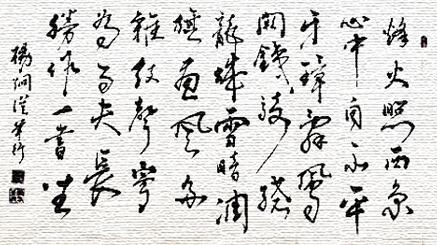 烽火照西京
心中自不平
牙璋辞凤
阙铁骑绕
龙城雪暗凋
旗画风多
雜鼓聲寧
為百夫長
勝作一書生
楊炯從軍行